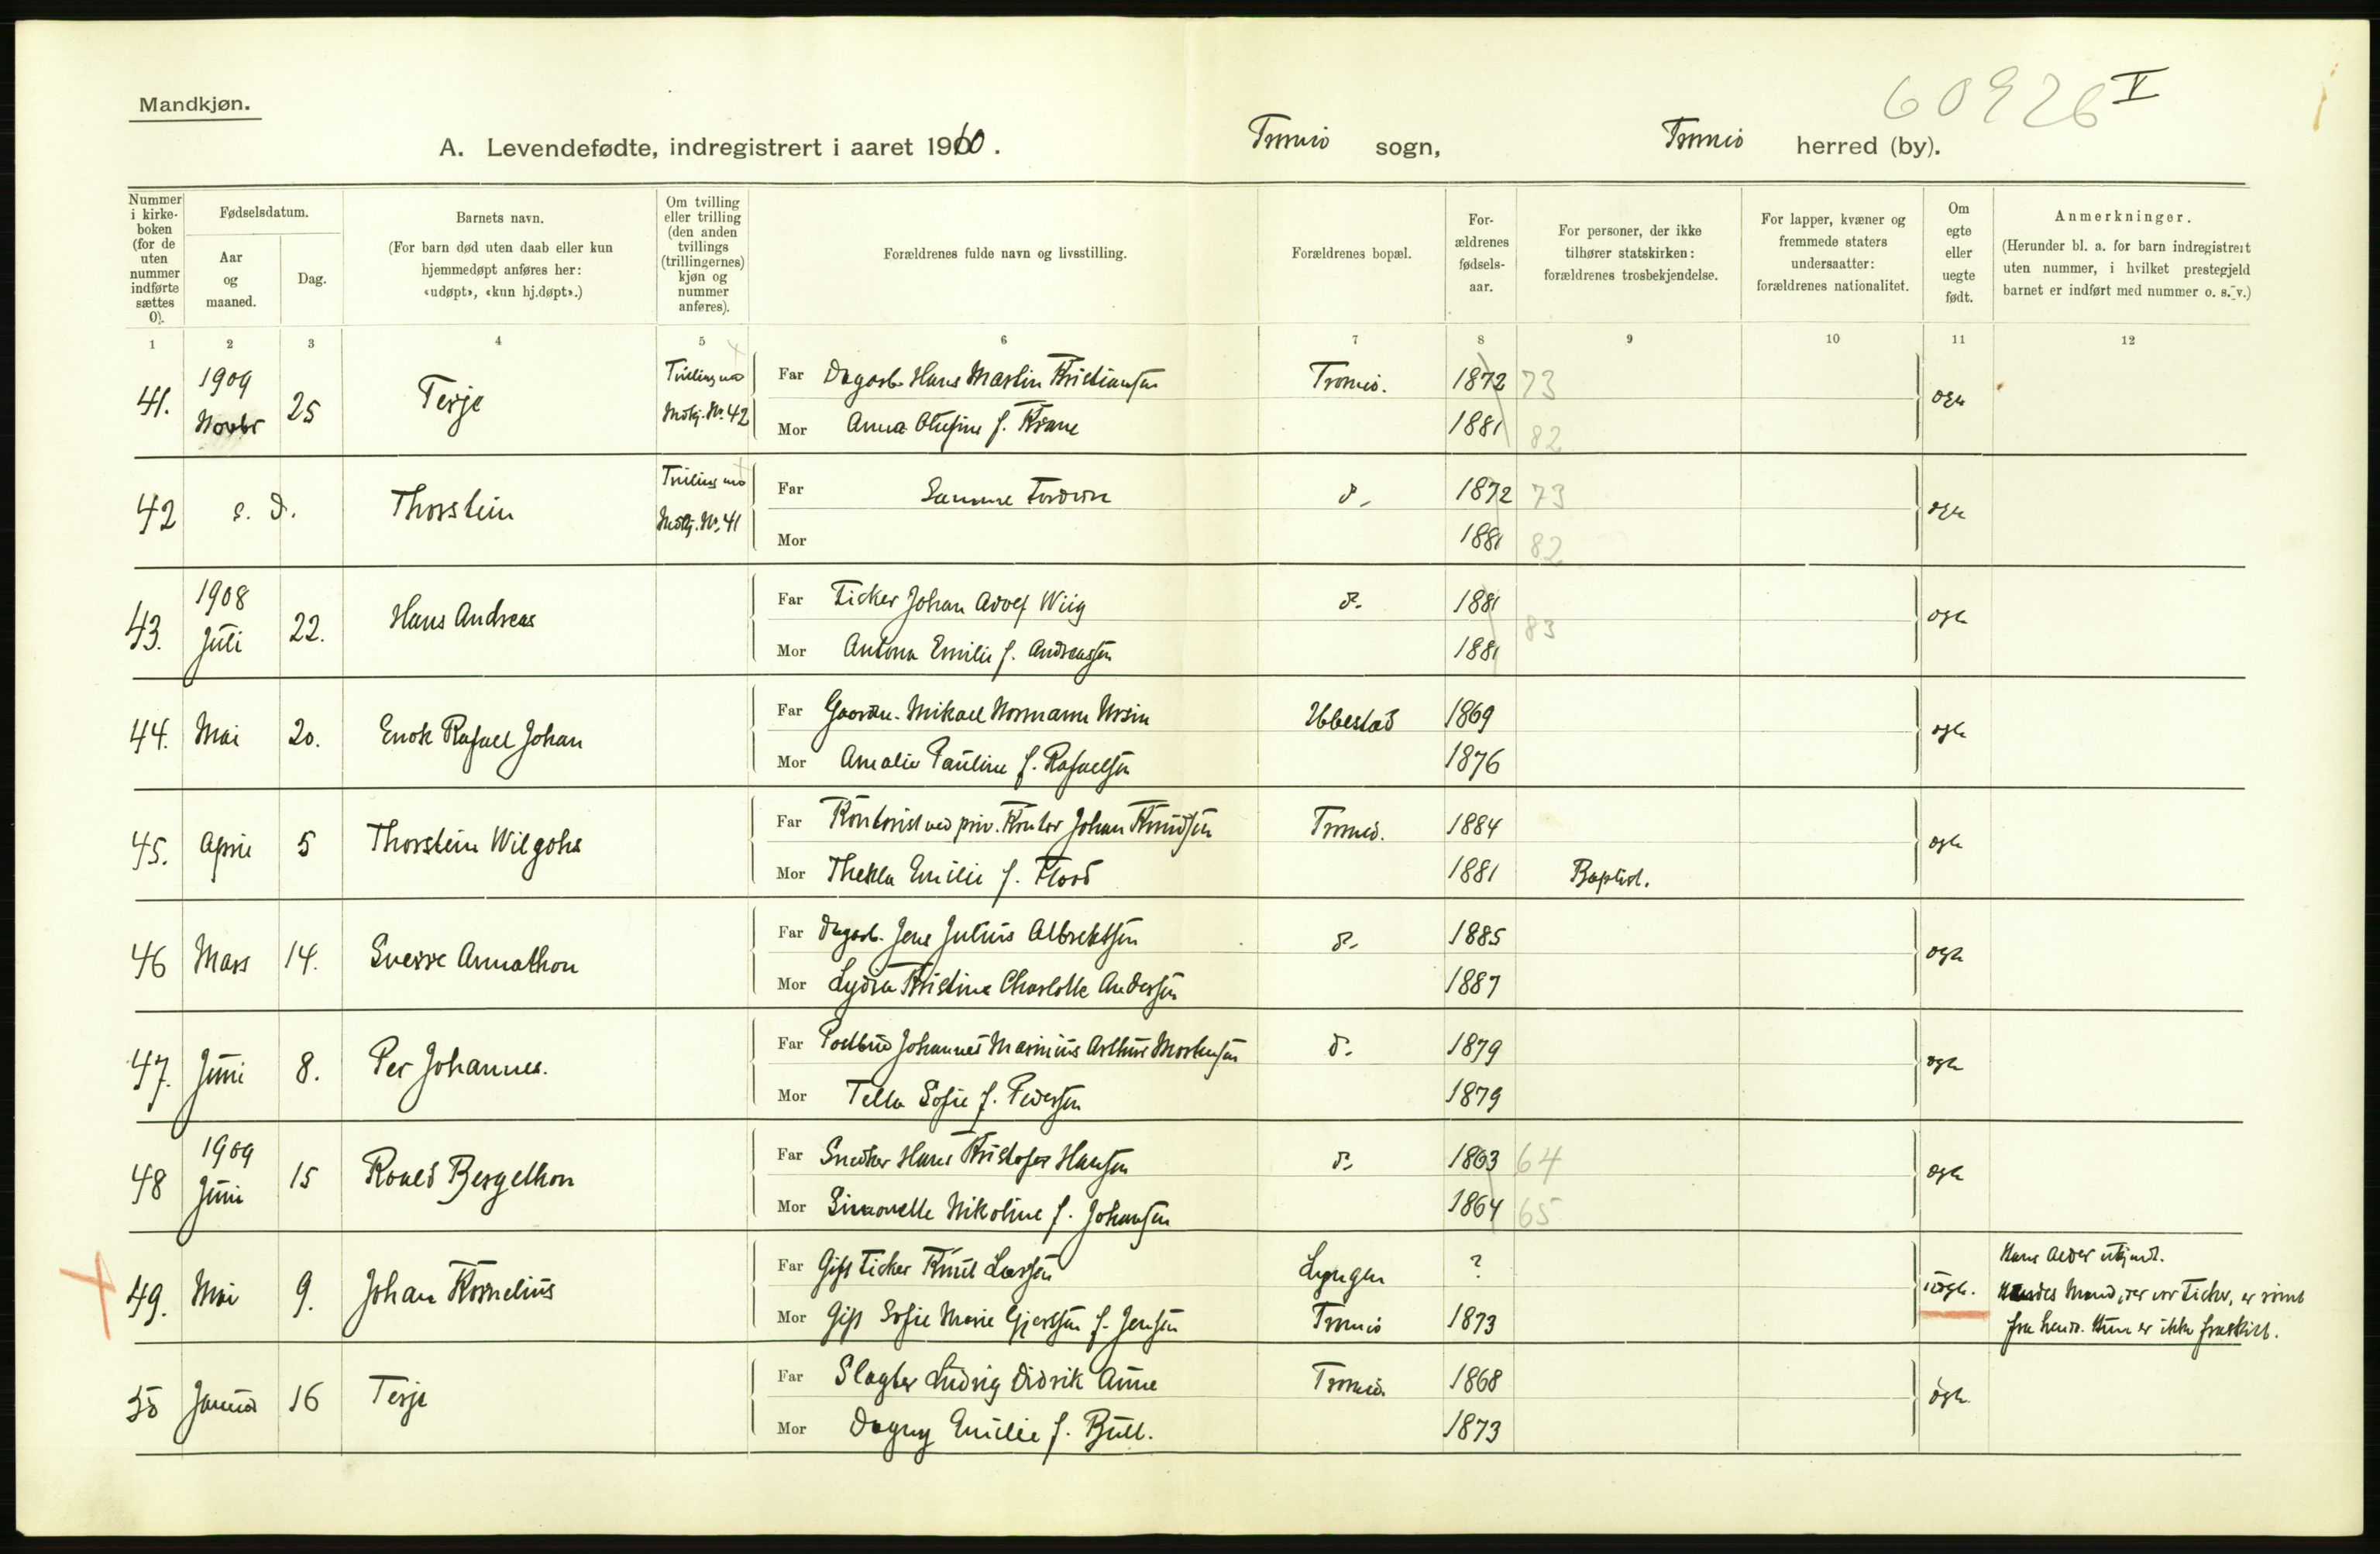 60926 V
Mandkjøn.
A. Levendefødte, indregistrert i aaret 1910. Tromsø sogn, Tromsø herred (by).
Nummer i kirke-boken (for de uten nummer indførte sættes 0).
Fødselsdatum.
Aar og maaned.
Dag.
Barnets navn.
(For barn død uten daab eller kun hjemmedøpt anføres her: «udøpt», «kun hj.døpt».)
Om tvilling eller trilling (den anden tvillings (trillingernes) kjøn og nummer anføres).
Forældrenes fulde navn og livsstilling.
Forældrenes bopæl.
For-ældrenes fødsels-aar.
For personer, der ikke tilhører statskirken: forældrenes trosbekjendelse.
For lapper, kvæner og fremmede staters undersaatter: forældrenes nationalitet.
Om egte eller uegte født.
Anmerkninger.
(Herunder bl. a. for barn indregistrert uten nummer, i hvilket prestegjeld barnet er indført med nummer o. s. v.)
1 2 3 4 5 6 7 8 9 10 11 12
41. 1909 Novbr 25 Terje Tvilling med Mdkj. No. 42 Far Dagarb. Hans Martin Kristiansen Tromsø. 1872 73 egte
Mor Anna Olufine f. Krane 1881 82
42 s. d. Thorstein Tvilling med Mdkj. No. 41 Far Samme Foreldre d. 1872 73 egte
Mor 1881 82
43. 1908 Juli 22. Hans Andreas Far Fisker Johan Adolf Wiig d. 1881 83 egte
Mor Antona Emilie f. Andreassen 1881
44. Mai 20. Enok Rafael Johan Far Mikael Normann Ibbestad 1869 egte
Mor Amalie Pauline f. Rafaelsen 1876
45. April 5 Thorstein Wilgohs Far Kontorist ved priv. Kontor Johan Knudsen Tromsø. 1884 egte
Mor Thekla Emilie f. Flood 1881 Baptist.
46 Mars 14. Sverre Annathon Far Dagarb. Jens Julius Albrektsen d. 1885 egte
Mor Lydia Kristine Charlotte Andersen 1887
47. Juni 8. Per Johannes. Far Postbud Johannes Marinius Arthur Mortensen d. 1879 egte
Mor Tella Sofie f. Pedersen 1879
48 1909 Juni 15 Roald Bergethon Far Snedker Hans Kristofer Hansen d. 1863 64 egte
Mor Simonette Nikoline f. Johansen 1864 65
49. Mai 9. Johan Kornelius Far Gift Fisker Knut Larsen Lyngen ? uegte. Hans Alder ukjendt.
Mor Gift Sofie Marie Gjertsen f. Jensen Tromsø 1873 Hendes Mand, der var Fisker, er rømt
fra hende. Hun er ikke fraskilt.
50 Januar 16 Terje Far Slagter Ludvig Didrik Aune Tromsø 1868 egte
Mor Dagny Emilie f. Bull. 1873